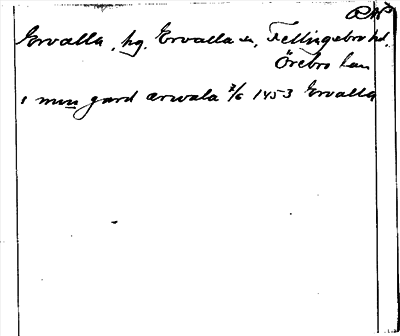 RAP
Ervalla, hg. Ervalla sn, Fellingsbro hd.
Örebro län
i min gard ærvala 2/6 1453 Ervalla